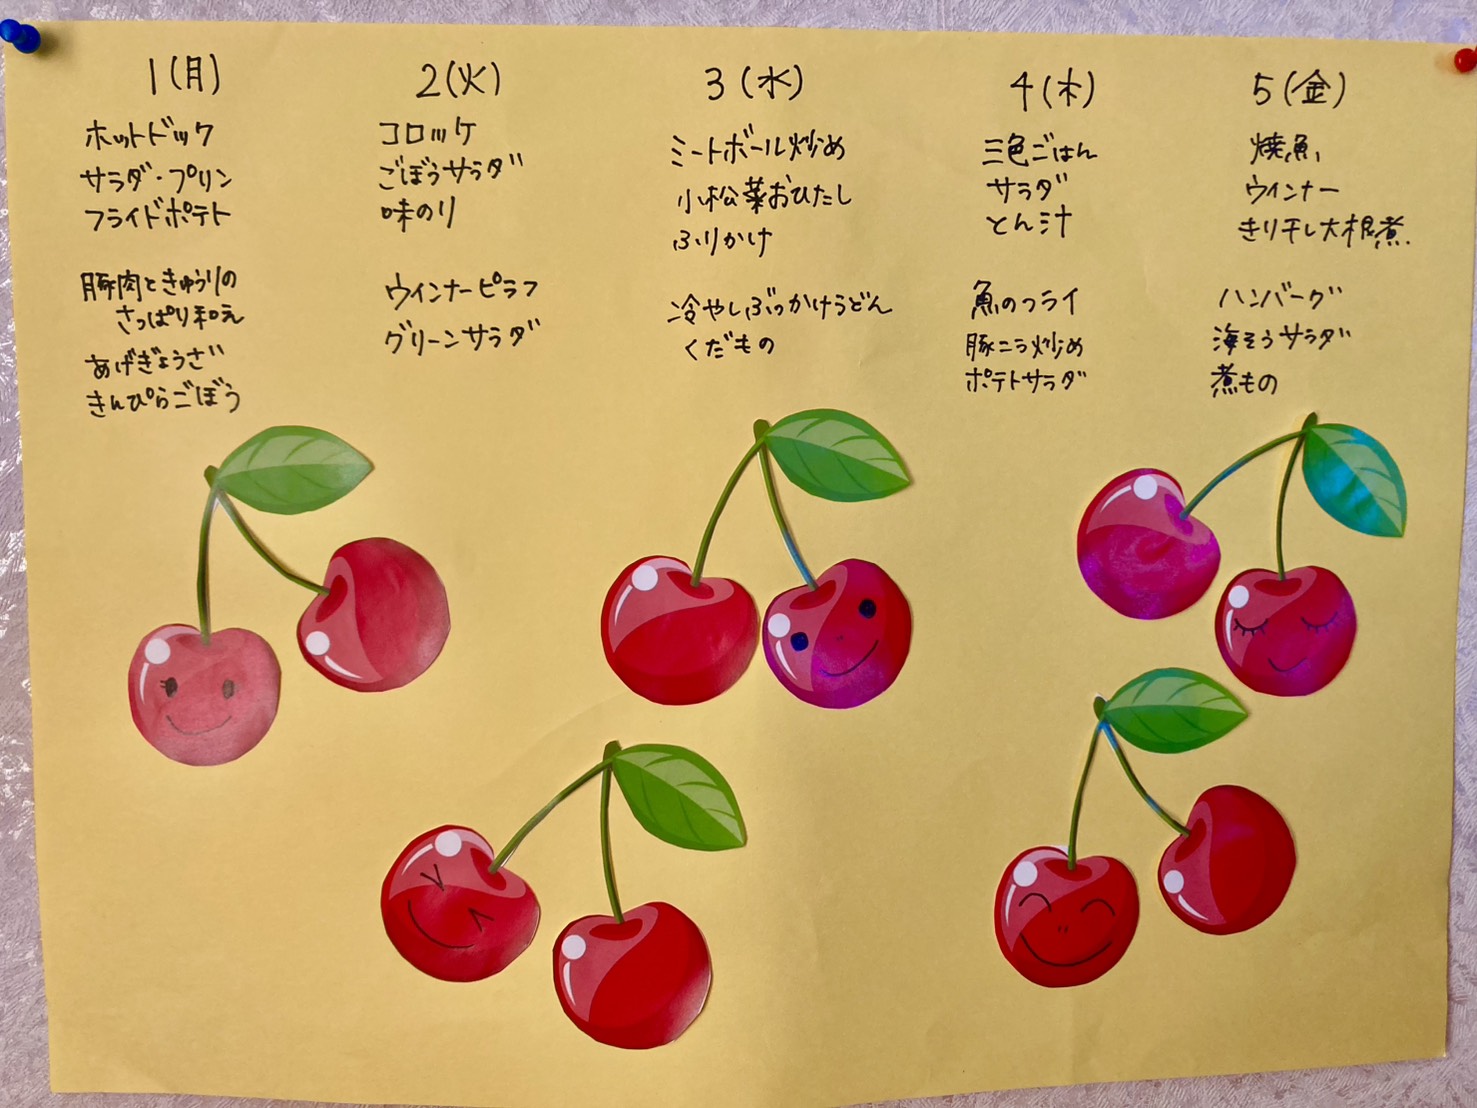 1(月)
ホットドック
サラダ・プリン
フライドポテト
豚肉ときゅうりの
さっぱり和え
あげぎょうざ
きんぴらごぼう
2(火)
コロッケ
ごぼうサラダ
味のり
ウインナーピラフ
グリーンサラダ
3(水)
ミートボール炒め
小松菜おひたし
ふりかけ
冷やしぶっかけうどん
くだもの
4(木)
三色ごはん
サラダ
とん汁
魚のフライ
豚ニラ炒め
ポテトサラダ
5(金)
焼魚
ウインナー
きり干し大根煮
ハンバーグ
海そうサラダ
煮もの